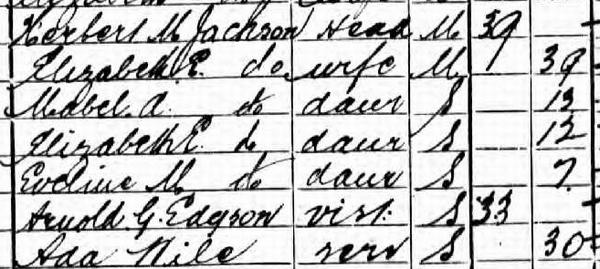 Herbert M. Jackson Head M 39
Elizabeth E. do wife M 39
Mabel A. do daur S 13
Elizabeth E. do daur S 12
Eveline M. do daur S 7
Arnold G. Edgson vist. S 33
Ada Nile serv S 30